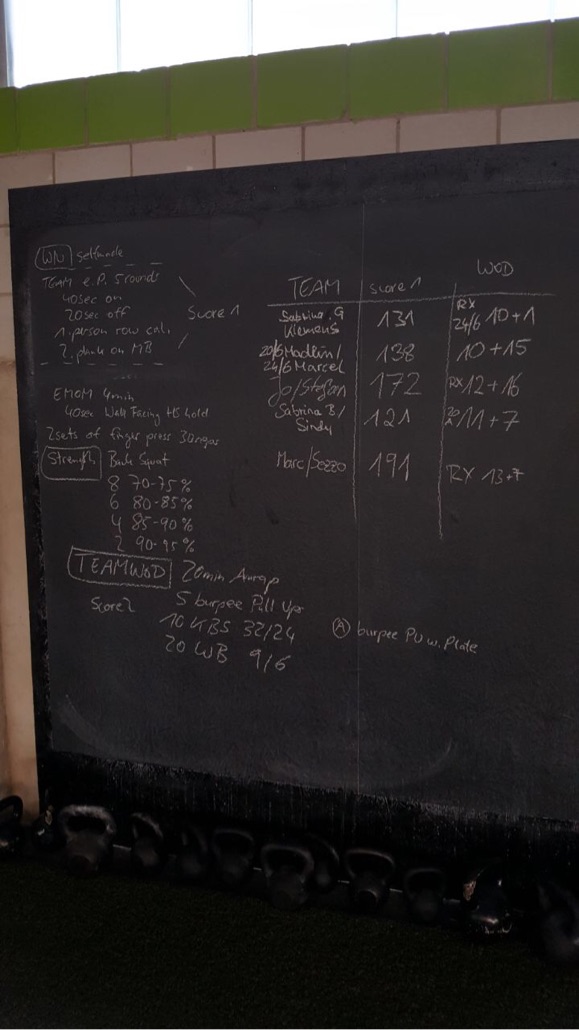 WU
TEAM e.P. 5 rounds
40sec on
20sec off
1. person row cal.
2. plank on MB
Score 1
EMOM 4min
40sec Wall Facing HS hold
2sets of finger press 30
Strength Back Squat
8 70-75%
6 80-85%
4 85-90%
2 90-95%
TEAMWOD 20min Amrap
Score2 5 burpee Pull Ups
10 KBS 32/24
20 WB 9/6
TEAM score 1 WOD
Sabrina G 131 RX
Klemens 24/6 10+1
20/6 Madlen/ 138 10+15
24/6 Marcel
Jo/Stefan 172 RX 12+16
Sabrina B/ 121 20 11+7
Sindy
Marc/ 191 RX 13+7
A burpee PU w. Plate